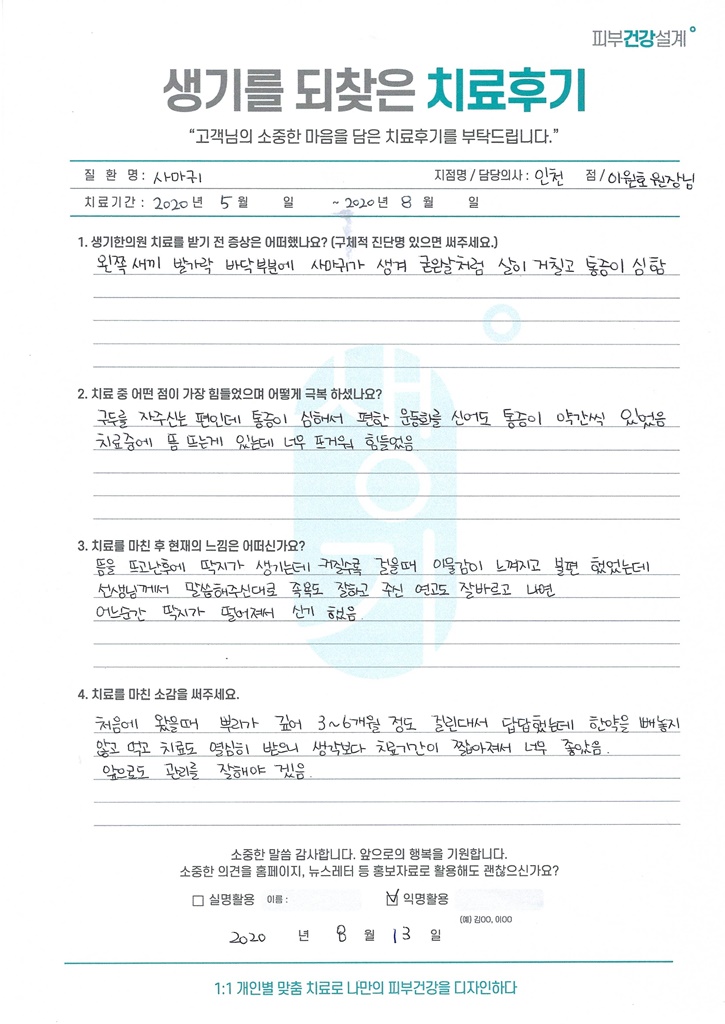 피부건강설계
생기를 되찾은 치료후기
“고객님의 소중한 마음을 담은 치료후기를 부탁드립니다.”
질 환 명 : 사마귀 지점명 / 담당의사 : 인천 점 / 이원호 원장님
치료기간 : 2020 년 5 월 일 ~ 2020 년 8 월 일
1. 생기한의원 치료를 받기 전 증상은 어떠했나요? (구체적 진단명 있으면 써주세요.)
왼쪽 새끼 발가락 바닥부분에 사마귀가 생겨 굳은살처럼 살이 거칠고 통증이 심함
생
2. 치료 중 어떤 점이 가장 힘들었으며 어떻게 극복 하셨나요?
구두를 자주신는 편인데 통증이 심해서 편한 운동화를 신어도 통증이 약간씩 있었음
치료중에 뜸 뜨는게 있는데 너무 뜨거워 힘들었음
3. 치료를 마친 후 현재의 느낌은 어떠신가요?
뜸을 뜨고난후에 딱지가 생기는데 커질수록 걸을때 이물감이 느껴지고 불편 했었는데
선생님께서 말씀해주신대로 족욕도 잘하고 주신 연고도 잘바르고 나면
어느순간 딱지가 떨어져서 신기 했음
기
4. 치료를 마친 소감을 써주세요.
처음에 왔을때 뿌리가 깊어 3~6개월 정도 걸린대서 답답했는데 한약을 빼놓지
않고 먹고 치료도 열심히 받으니 생각보다 치료기간이 짧아져서 너무 좋았음.
앞으로도 관리를 잘해야 겠음.
소중한 말씀 감사합니다. 앞으로의 행복을 기원합니다.
소중한 의견을 홈페이지, 뉴스레터 등 홍보자료로 활용해도 괜찮으신가요?
실명활용 이름 : 익명활용
(예) 김OO, 이OO
2020 년 8 월 13 일
1:1 개인별 맞춤 치료로 나만의 피부건강을 디자인하다